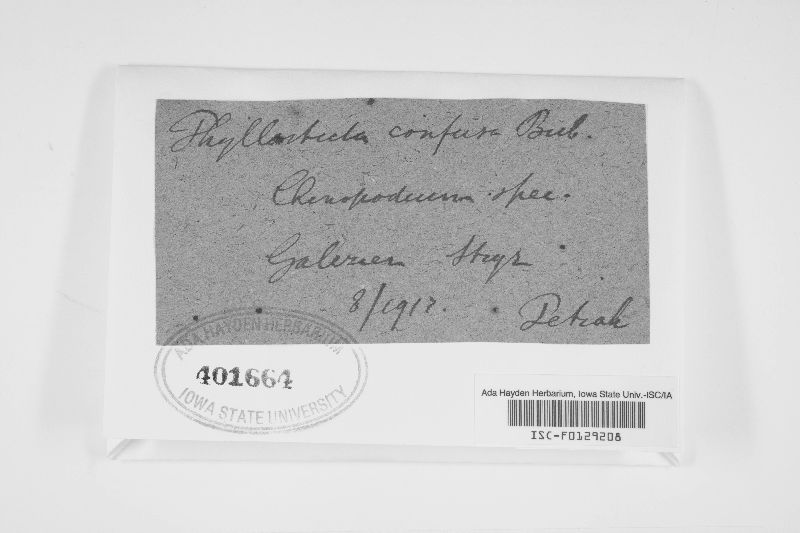 Phyllosticta confusa Bub.
Chenopodium spec.
Galizien Stryj
8/1917.
Petrak
ADA HAYDEN HERBARIUM
401664
IOWA STATE UNIVERSITY
Ada Hayden Herbarium, Iowa State Univ.-ISC/IA
ISC-F0129208